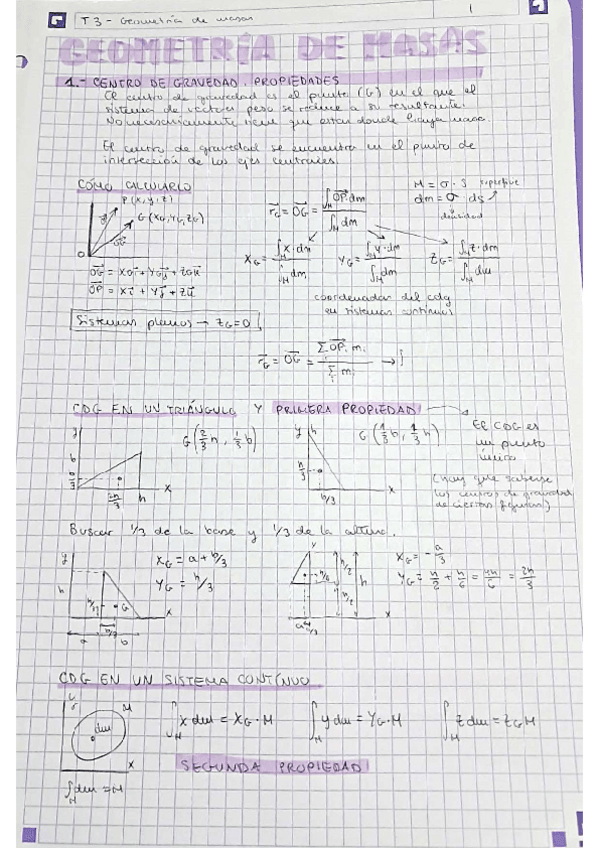 T3 - Geometría de masas
1
GEOMETRÍA DE MASAS
1.- CENTRO DE GRAVEDAD. PROPIEDADES
El centro de gravedad es el punto (G) en el que el
sistema de vectores peso se reduce a su resultante.
No necesariamente tiene que estar donde haya masa.
El centro de gravedad se encuentra en el punto de
intersección de los ejes centrales.
CÓMO CALCULARLO
P(x,y,z)
G(XG,YG,ZG)
O
OG = XGi + YGj + ZGk
OP = Xi + Yj + Zk
rG = OG = ∫M OP·dm / ∫M dm
M = σ · S superficie
dm = σ ds
densidad
XG = ∫M x·dm / ∫M dm
YG = ∫M y·dm / ∫M dm
ZG = ∫M z·dm / ∫M dm
coordenadas del cdg
en sistemas continuos
Sistemas planos → ZG=0
rG = OG = Σ OPi mi / Σ mi
CDG EN UN TRIÁNGULO Y PRIMERA PROPIEDAD
El CDG es
un punto
único
G(2/3 h, 1/3 b)
G(1/3 b, 1/3 h)
(hay que saberse
los centros de gravedad
de ciertas figuras)
Buscar 1/3 de la base y 1/3 de la altura.
XG = a + b/3
YG = h/3
XG = -a/3
YG = h/2 + h/6 = 4h/6 = 2h/3
CDG EN UN SISTEMA CONTINUO
M
dm
∫M x dm = XG·M
∫M y dm = YG·M
∫M z dm = ZG M
SEGUNDA PROPIEDAD
∫M dm = M